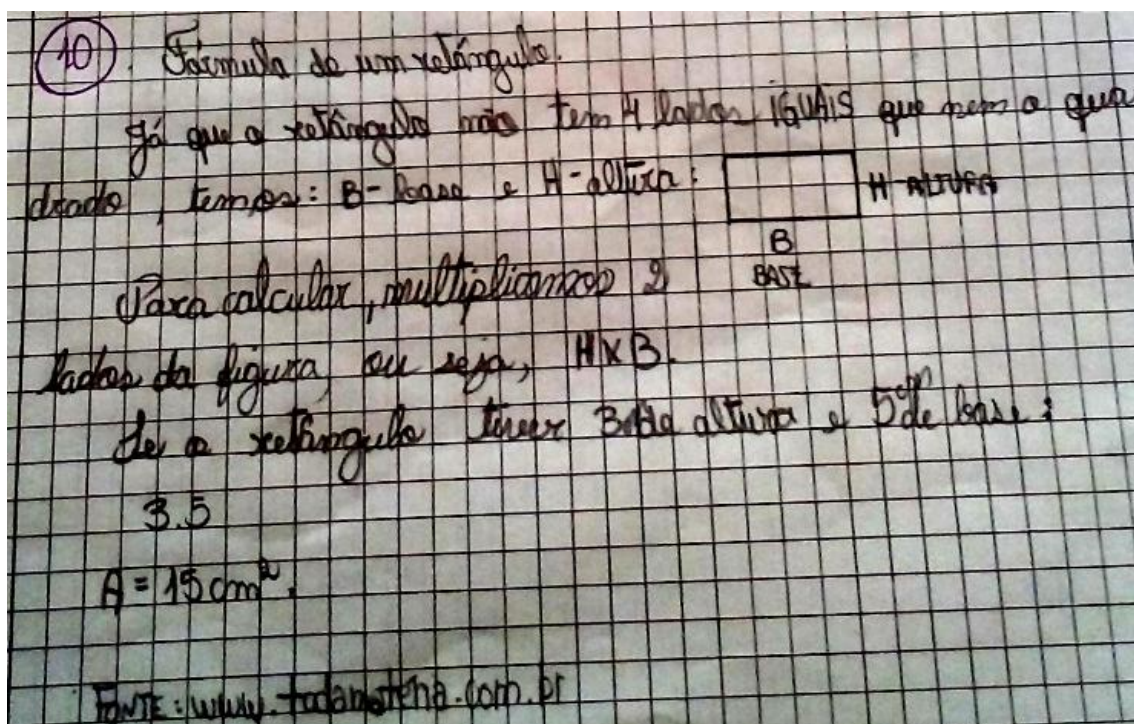 10 Fórmula de um retângulo.
Já que o retângulo não tem 4 lados IGUAIS que nem o qua
drado, temos: B- base e H- altura: H ALTURA
B
BASE
Para calcular, multiplicamos 2
lados da figura, ou seja, HXB.
Se o retângulo tiver 3 de altura e 5cm de base:
3.5
A = 15cm².
FONTE: www.todamateria.com.br